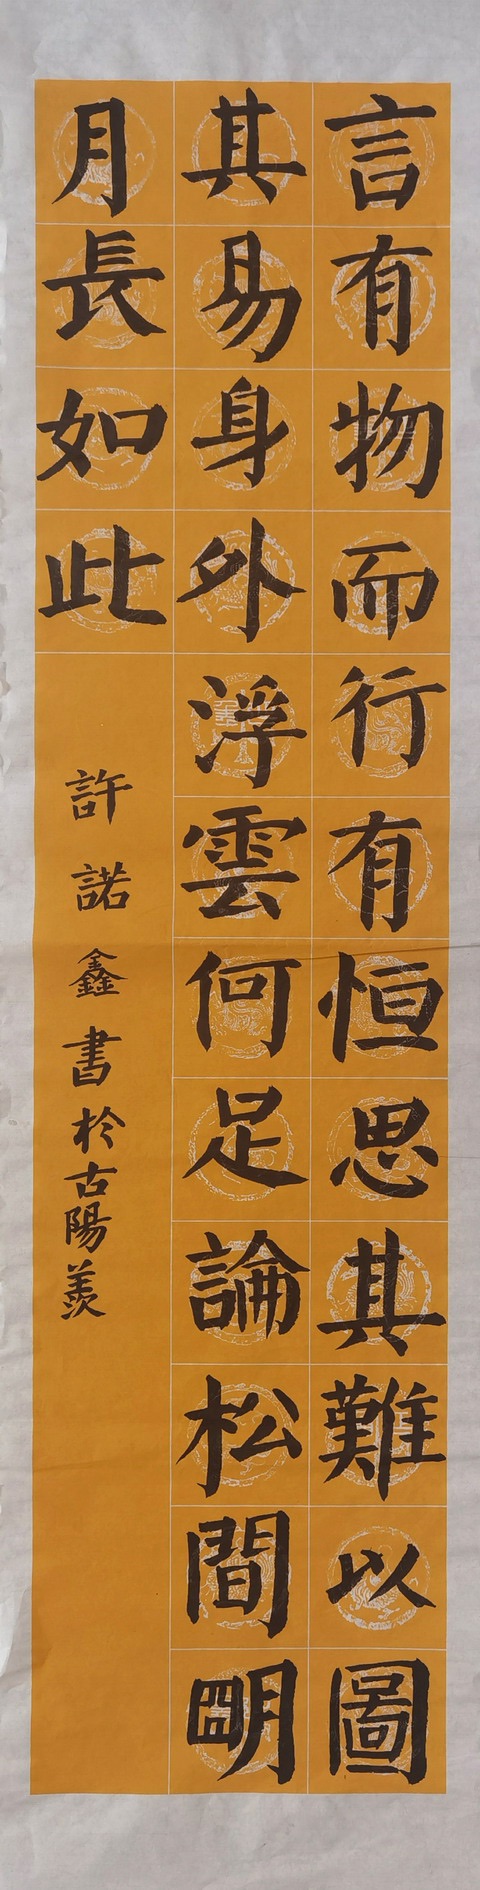 言有物而行有恒思其難以圖
其易身外浮雲何足論松間朙
月長如此
許諾鑫書於古陽羨